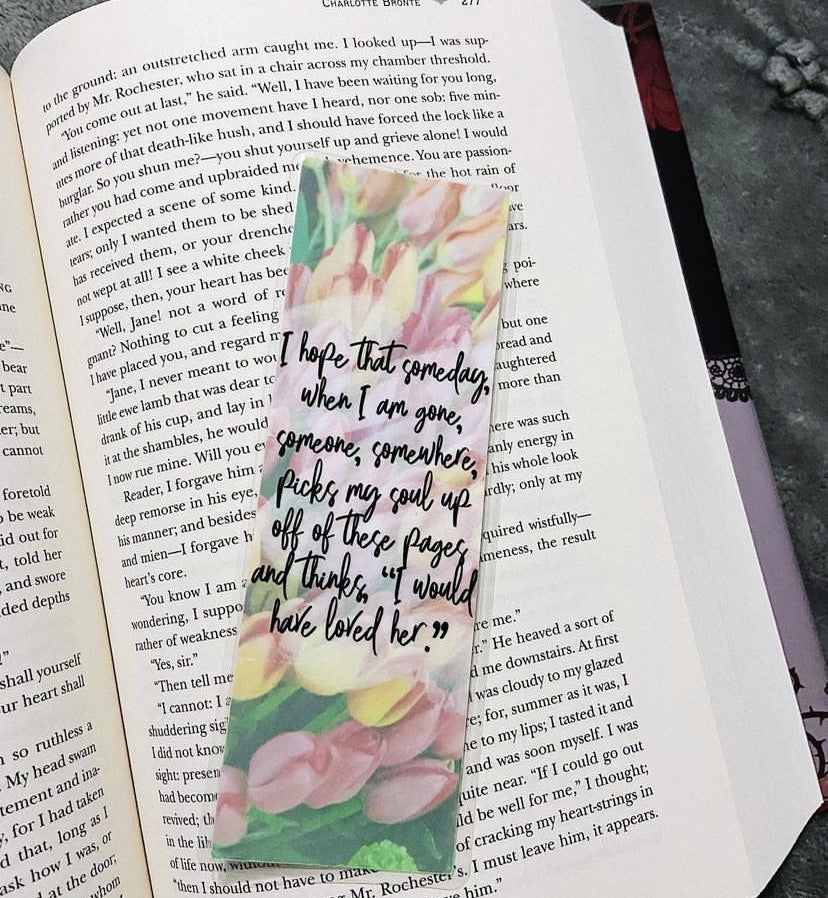 CHARLOTTE BRONTË 277
to the ground: an outstretched arm caught me. I looked up—I was sup-
ported by Mr. Rochester, who sat in a chair across my chamber threshold.
"You come out at last," he said. "Well, I have been waiting for you long,
and listening: yet not one movement have I heard, nor one sob: five min-
utes more of that death-like hush, and I should have forced the lock like a
burglar. So you shun me?—you shut yourself up and grieve alone! I would
rather you had come and upbraided me vehemence. You are passion-
ate. I expected a scene of some kind. the hot rain of
tears; only I wanted them to be shed floor
has received them, or your drenche ave
not wept at all! I see a white cheek ars.
I suppose, then, your heart has bee
"Well, Jane! not a word of re poi-
gnant? Nothing to cut a feeling where
I have placed you, and regard m
"Jane, I never meant to wou but one
little ewe lamb that was dear to bread and
drank of his cup, and lay in aughtered
it at the shambles, he would more than
I now rue mine. Will you e
Reader, I forgave him here was such
deep remorse in his eye, anly energy in
his manner; and besides his whole look
and mien—I forgave h rdly; only at my
heart's core.
"You know I am quired wistfully—
wondering, I suppo meness, the result
rather of weakness
"Yes, sir."
"Then tell me re me."
"I cannot: I r." He heaved a sort of
shuddering sig d me downstairs. At first
I did not know was cloudy to my glazed
sight: presen e; for, summer as it was, I
had become e to my lips; I tasted it and
revived; th and was soon myself. I was
in the lib uite near. "If I could go out
of life now, without ld be well for me," I thought;
"then I should not have to make of cracking my heart-strings in
Mr. Rochester's. I must leave him, it appears.
him."
I hope that someday,
when I am gone,
someone, somewhere,
picks my soul up
off of these pages
and thinks, "I would
have loved her."
NG
ne
e"—
bear
t part
reams,
er; but
cannot
foretold
o be weak
id out for
t, told her
, and swore
ded depths
!"
shall yourself
ur heart shall
n so ruthless a
My head swam
tement and ina-
y, for I had taken
d that, long as I
ask how I was, or
d at the door;
whom